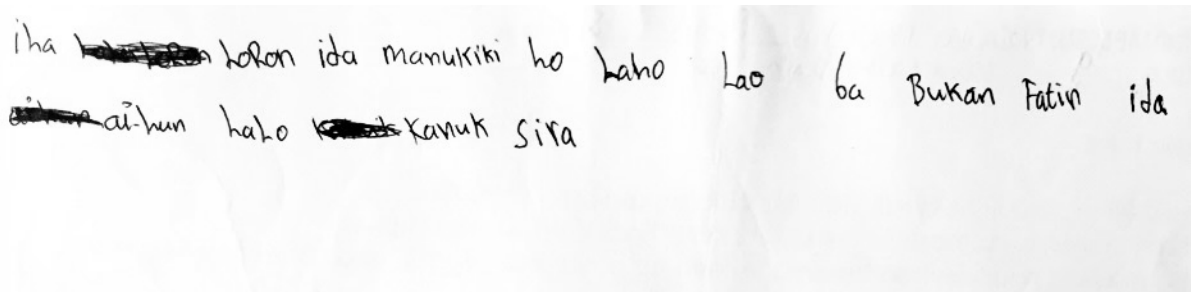 iha LoRon ida manukiki ho Laho Lao ba Bukan Fatin ida
ai-hun haLo Kanuk Sira